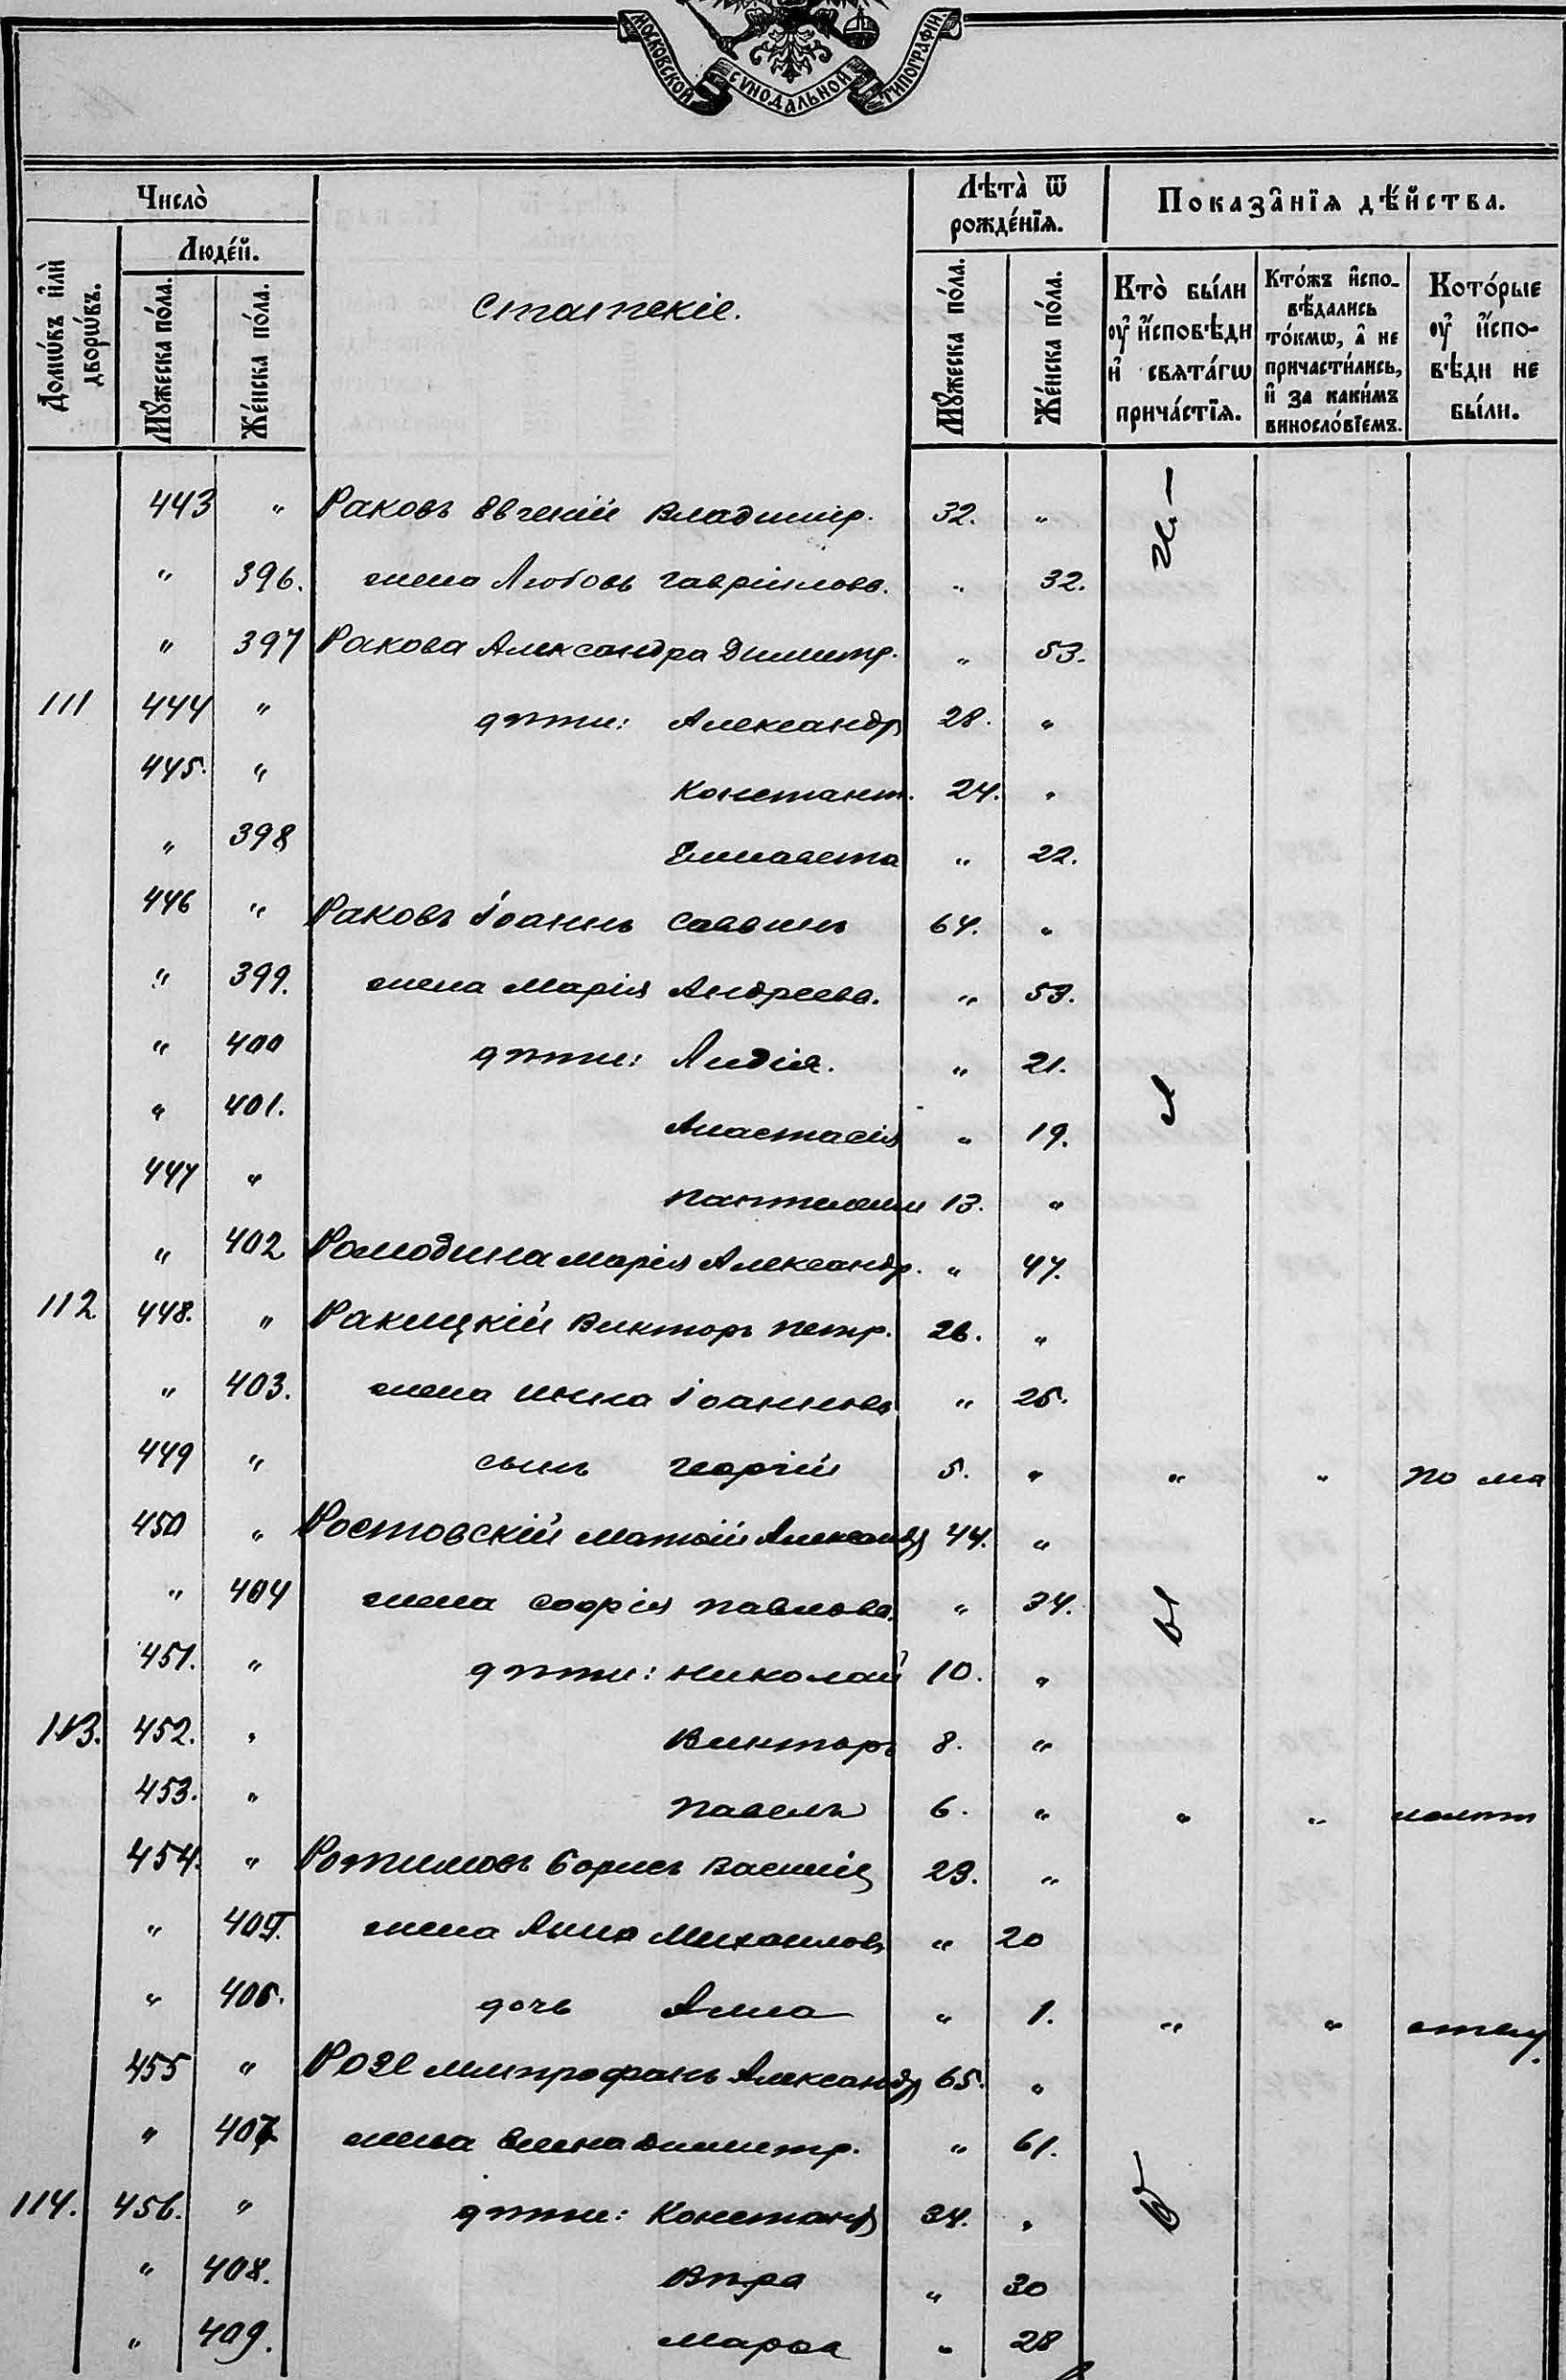 МОСКОВСКОЙ СУНОДАЛЬНОЙ ТИПОГРАФІИ
Число̀
Домѡ́въ и҆лѝ дворѡ́въ.
Люде́й.
Мꙋ́жеска по́ла.
Же́нска по́ла.
Статскіе.
Лѣта̀ ѿ рожде́нїѧ.
Мꙋ́жеска по́ла.
Же́нска по́ла.
Показа̑нїѧ дѣ́йства.
Кто̀ бы́ли ᲂу҆ и҆́сповѣди и҆ свѧта́гѡ прича́стїѧ.
Кто́жъ и҆сповѣ́дались то́кмѡ, а҆ не причасти́лись, и҆ за каки́мъ виносло́вїемъ.
Кото́рые ᲂу҆ и҆́сповѣди не бы́ли.
443 " Раковъ Евгеній Владимір. 32. "
" 396. жена Любовь Гавріилова. " 32.
" 397 Ракова Александра Димитр. " 53.
111 444 " дѣти: Александр 28. "
445. " Констант. 24. "
" 398 Елисавета " 22.
446 " Раковъ Іоаннъ Саввинъ 64. "
" 399. жена Марія Андреева. " 53.
" 400 дѣти: Лидія. " 21.
" 401. Анастасія " 19.
447 " Пантелеим 13. "
" 402 Ромодина Марія Александр. " 47.
112 448. " Ракицкій Викторъ Петр. 26. "
" 403. жена Нина Іоаннова " 25.
449 " сынъ Георгій 5. " " " по ма
450 " Ростовскій Матѳій Александр 44. "
" 404 жена Софія Павлова. " 34.
451. " дѣти: Николай 10. "
113. 452. " Викторъ 8. "
453. " Павелъ 6. " " " лолѣт
454. " Борисъ Василіе 23. "
" 405. жена Анна Михаилов " 20
" 406. дочь Анна " 1. " " ству.
455 " Розе Митрофанъ Александр 65. "
" 407 жена Елена Димитр. " 61.
114. 456. " дѣти: Констант 34. "
" 408. Вѣра " 30
" 409. Марѳа " 28